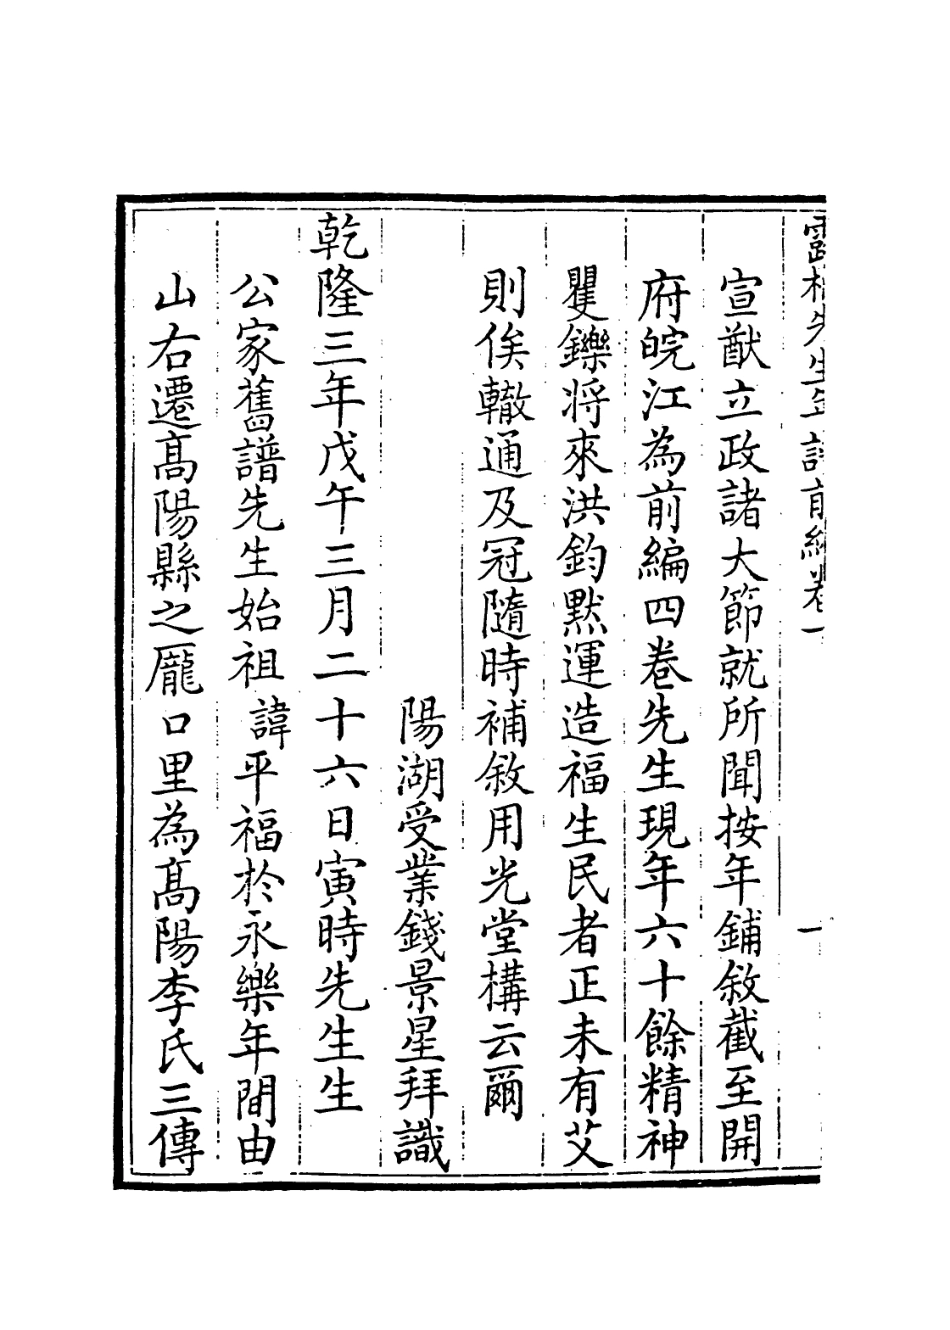 先生年譜前編卷一
一
宣猷立政諸大節就所聞按年鋪敘截至開
府皖江為前編四卷先生現年六十餘精神
矍鑠將來洪鈞默運造福生民者正未有艾
則俟轍通及冠隨時補敘用光堂構云爾
陽湖受業錢景星拜識
乾隆三年戊午三月二十六日寅時先生生
公家舊譜先生始祖諱平福於永樂年間由
山右遷高陽縣之龎口里為高陽李氏三傳